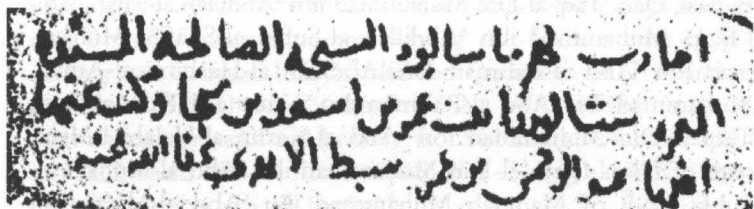 اجازت لهم ما سالوه الشيخة الصالحة المسندة
ست الوزراء ابنت عمر بن اسعد بن منجا وكتب عنها
اذنها عبد الرحمن بن عمر سبط عفا الله عنه